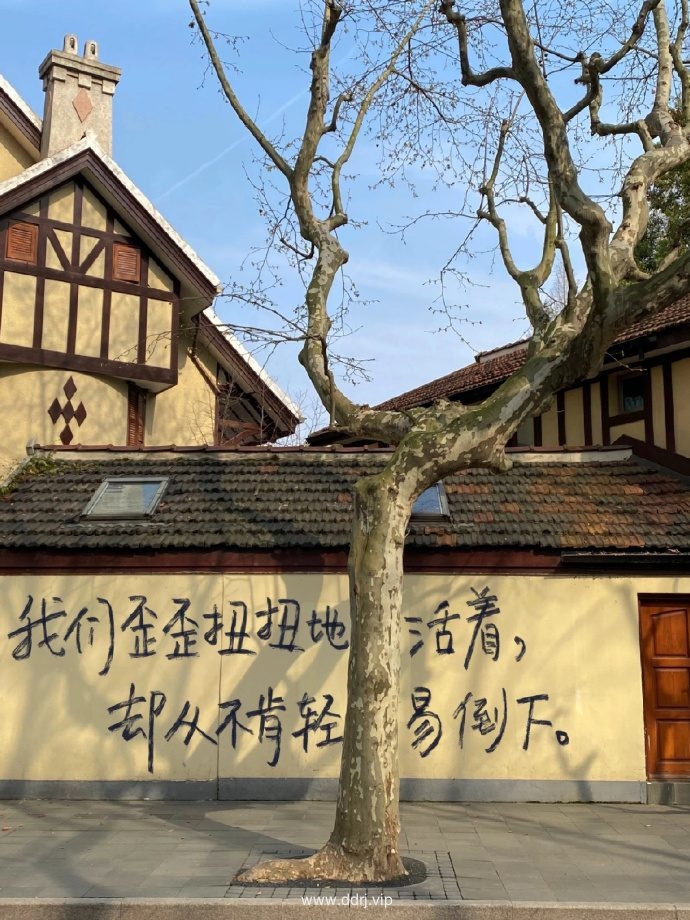 我们歪歪扭扭地活着,
却从不肯轻易倒下。
www.ddrj.vip